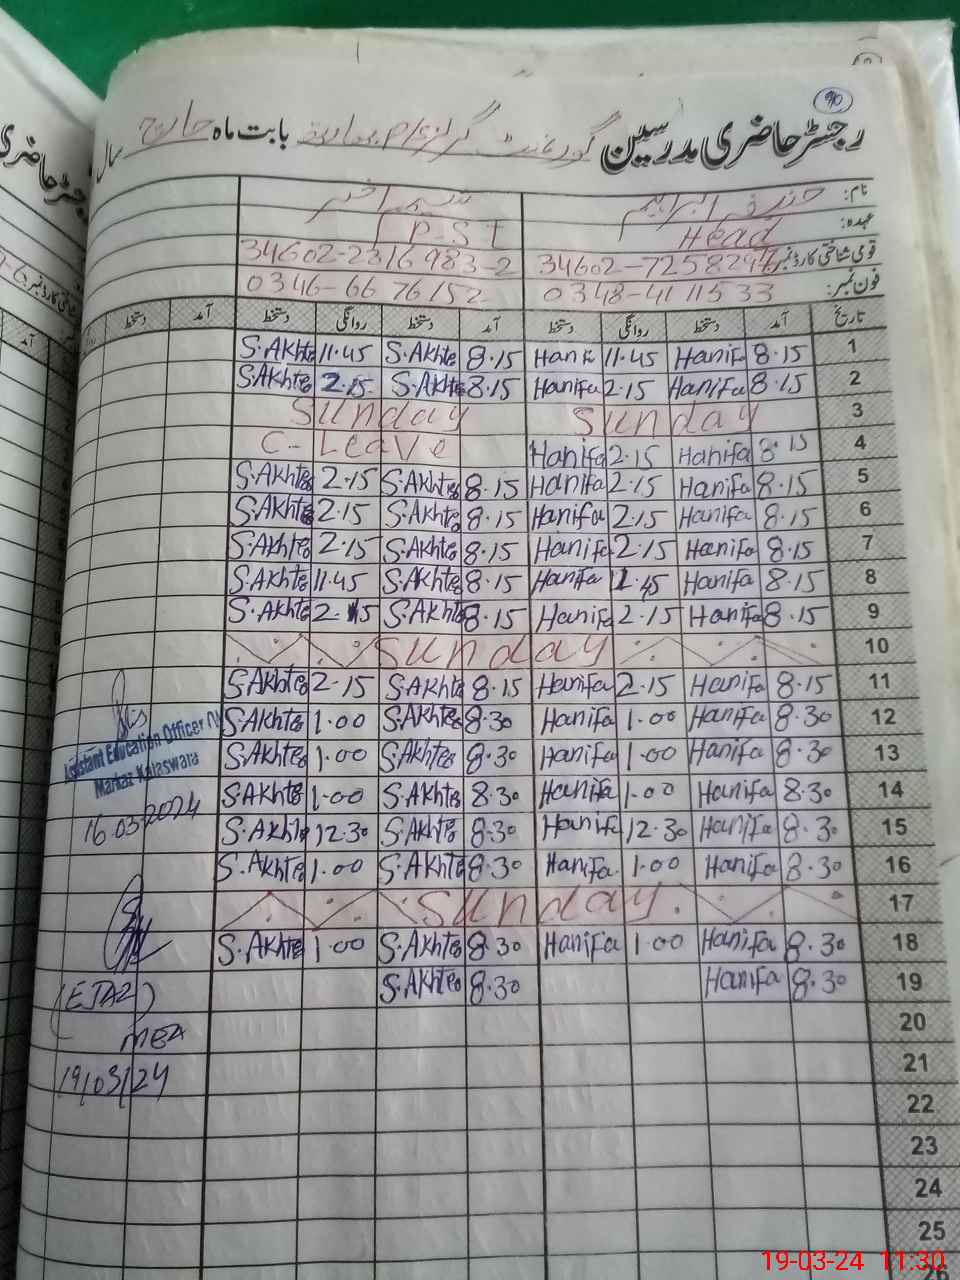 90
رجسٹر حاضری مدرسین گورنمنٹ گرلز بابت ماہ مارچ سال
نام: حنیفہ ابراہیم نسیم اختر
عہدہ: Head P.S.T
قومی شناختی کارڈ نمبر 34602-2316983-2
فون نمبر: 0348-4111533 0346-6676152
تاریخ آمد دستخط روانگی دستخط آمد دستخط روانگی دستخط آمد دستخط
1 8.15 Hanifa 11.45 Hani 8.15 S.Akhte 11.45 S.Akhte
2 8.15 Hanifa 2.15 Hanifa 8.15 S.Akhte 2.15 S.Akhte
3 Sunday Sunday
4 8.15 Hanifa 2.15 Hanifa C-Leave
5 8.15 Hanifa 2.15 Hanifa 8.15 S.Akhte 2.15 S.Akhte
6 8.15 Hanifa 2.15 Hanifa 8.15 S.Akhte 2.15 S.Akhte
7 8.15 Hanifa 2.15 Hanifa 8.15 S.Akhte 2.15 S.Akhte
8 8.15 Hanifa 11.45 Hanifa 8.15 S.Akhte 11.45 S.Akhte
9 8.15 Hanifa 2.15 Hanifa 8.15 S.Akhte 2.15 S.Akhte
10 Sunday
11 8.15 Hanifa 2.15 Hanifa 8.15 S.Akhte 2.15 S.Akhte
12 8.30 Hanifa 1.00 Hanifa 8.30 S.Akhte 1.00 S.Akhte
13 8.30 Hanifa 1.00 Hanifa 8.30 S.Akhte 1.00 S.Akhte
14 8.30 Hanifa 1.00 Hanifa 8.30 S.Akhte 1.00 S.Akhte
15 8.30 Hanifa 12.30 Hanifa 8.30 S.Akhte 12.30 S.Akhte
16 8.30 Hanifa 1.00 Hanifa 8.30 S.Akhte 1.00 S.Akhte
17 Sunday
18 8.30 Hanifa 1.00 Hanifa 8.30 S.Akhte 1.00 S.Akhte
19 8.30 Hanifa 8.30 S.Akhte
20
21
22
23
24
25
26
Assistant Education Officer
Markaz Kalaswara
16.03.2024
(EJAZ)
MEA
19/03/24
19-03-24 11:30